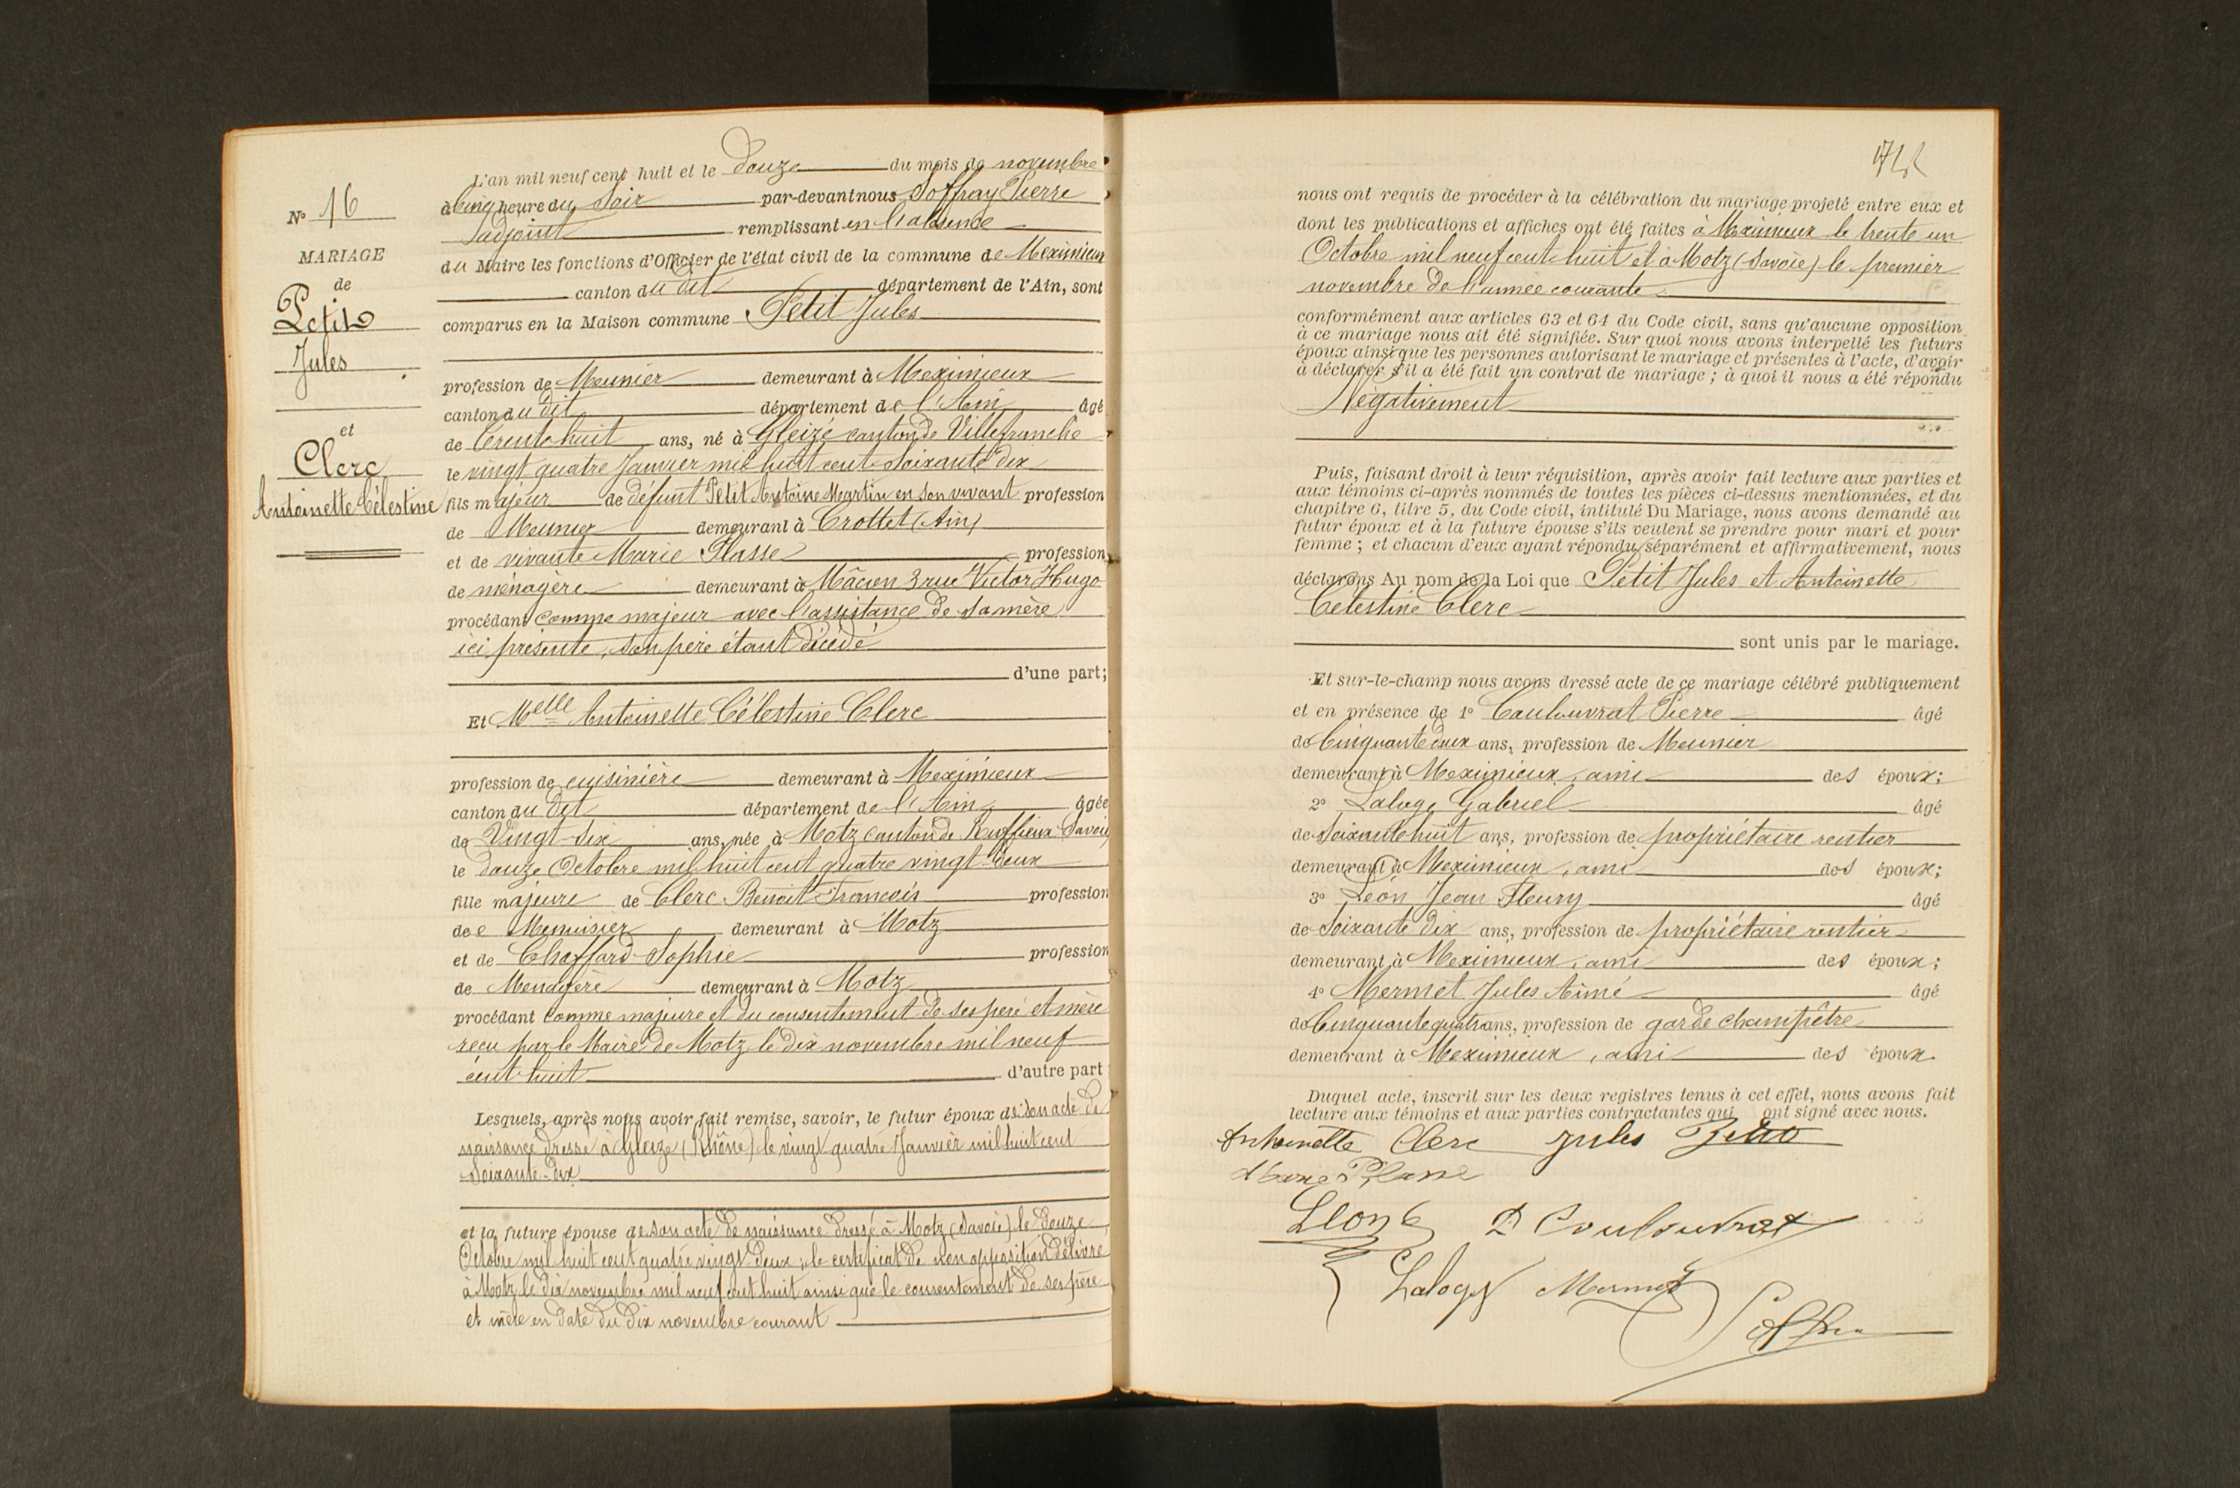 N° 16
MARIAGE
de
Petit
Jules
et
Clerc
Antoinette Célestine
L'an mil neuf cent huit et le douze du mois de novembre
à cinq heure du soir par-devant nous Soffray Pierre
l'adjoint remplissant en l'absence
du Maire les fonctions d'Officier de l'état civil de la commune de Meximieux
canton du dit département de l'Ain, sont
comparus en la Maison commune Petit Jules
profession de Meunier demeurant à Meximieux
canton du dit département de l'Ain âgé
de trente huit ans, né à Gleizé canton de Villefranche
le vingt quatre Janvier mil huit cent soixante dix
fils majeur de défunt Petit Antoine Martin en son vivant profession
de Meunier demeurant à Crottet (Ain)
et de vivante Marie Plasse profession
de ménagère demeurant à Mâcon 3 rue Victor Hugo
procédant comme majeur avec l'assistance de sa mère
ici présente, son père étant décédé
d'une part;
Et Melle Antoinette Célestine Clerc
profession de cuisinière demeurant à Meximieux
canton du dit département de l'Ain âgée
de Vingt-six ans, née à Motz canton de Ruffieux Savoie
le douze Octobre mil huit cent quatre vingt-deux
fille majeure de Clerc Benoit François profession
de Menuisier demeurant à Motz
et de Chaffard Sophie profession
de Menagère demeurant à Motz
procédant comme majeure et du consentement de ses père et mère
reçu par le Maire de Motz le dix novembre mil neuf
cent huit d'autre part
Lesquels, après nous avoir fait remise, savoir, le futur époux de son acte de
naissance dressé à Gleizé (Rhône) le vingt quatre Janvier mil huit cent
soixante-dix
et la future épouse de son acte de naissance dressé à Motz (Savoie) le douze
Octobre mil huit cent quatre vingt deux, le certificat de non opposition délivré
à Motz le dix novembre mil neuf cent huit ainsi que le consentement de ses père
et mère en date du dix novembre courant
nous ont requis de procéder à la célébration du mariage projeté entre eux et
dont les publications et affiches ont été faites à Meximieux le trente un
Octobre mil neuf cent huit et à Motz (Savoie) le premier
novembre de l'année courante
conformément aux articles 63 et 64 du Code civil, sans qu'aucune opposition
à ce mariage nous ait été signifiée. Sur quoi nous avons interpellé les futurs
époux ainsi que les personnes autorisant le mariage et présentes à l'acte, d'avoir
à déclarer s'il a été fait un contrat de mariage; à quoi il nous a été répondu
Négativement
Puis, faisant droit à leur réquisition, après avoir fait lecture aux parties et
aux témoins ci-après nommés de toutes les pièces ci-dessus mentionnées, et du
chapitre 6, titre 5, du Code civil, intitulé Du Mariage, nous avons demandé au
futur époux et à la future épouse s'ils veulent se prendre pour mari et pour
femme; et chacun d'eux ayant répondu séparément et affirmativement, nous
déclarons Au nom de la Loi que Petit Jules et Antoinette
Célestine Clerc
sont unis par le mariage.
Et sur-le-champ nous avons dressé acte de ce mariage célébré publiquement
et en présence de 1° Coulouvrat Pierre âgé
de Cinquante deux ans, profession de Meunier
demeurant à Meximieux, ami des époux;
2° Laloge Gabriel âgé
de soixante huit ans, profession de propriétaire rentier
demeurant à Meximieux, ami des époux;
3° Léon Jean Fleury âgé
de soixante dix ans, profession de propriétaire rentier
demeurant à Meximieux, ami des époux;
4° Mermet Jules Aimé âgé
de Cinquante quatre ans, profession de garde champêtre
demeurant à Meximieux, ami des époux.
Duquel acte, inscrit sur les deux registres tenus à cet effet, nous avons fait
lecture aux témoins et aux parties contractantes qui ont signé avec nous.
Antoinette Clerc Jules Petit
Marie Plasse
Léon P Coulouvrat
Laloge Mermet